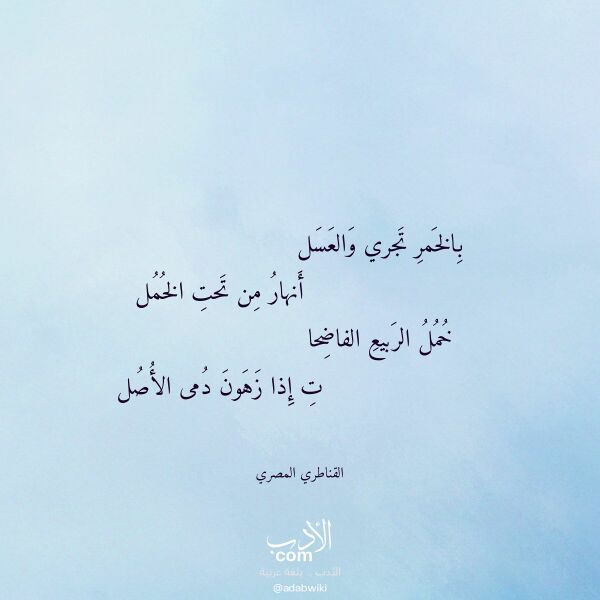 بِالخَمرِ تَجري وَالعَسَل
أَنهارُ مِن تَحتِ الخُمُل
خُمُلُ الرَبيعِ الفاضِحا
تِ إِذا زَهَونَ دُمى الأُصُل
القناطري المصري
الأدب
com
الأدب .. بلغة عربية
@adabwiki